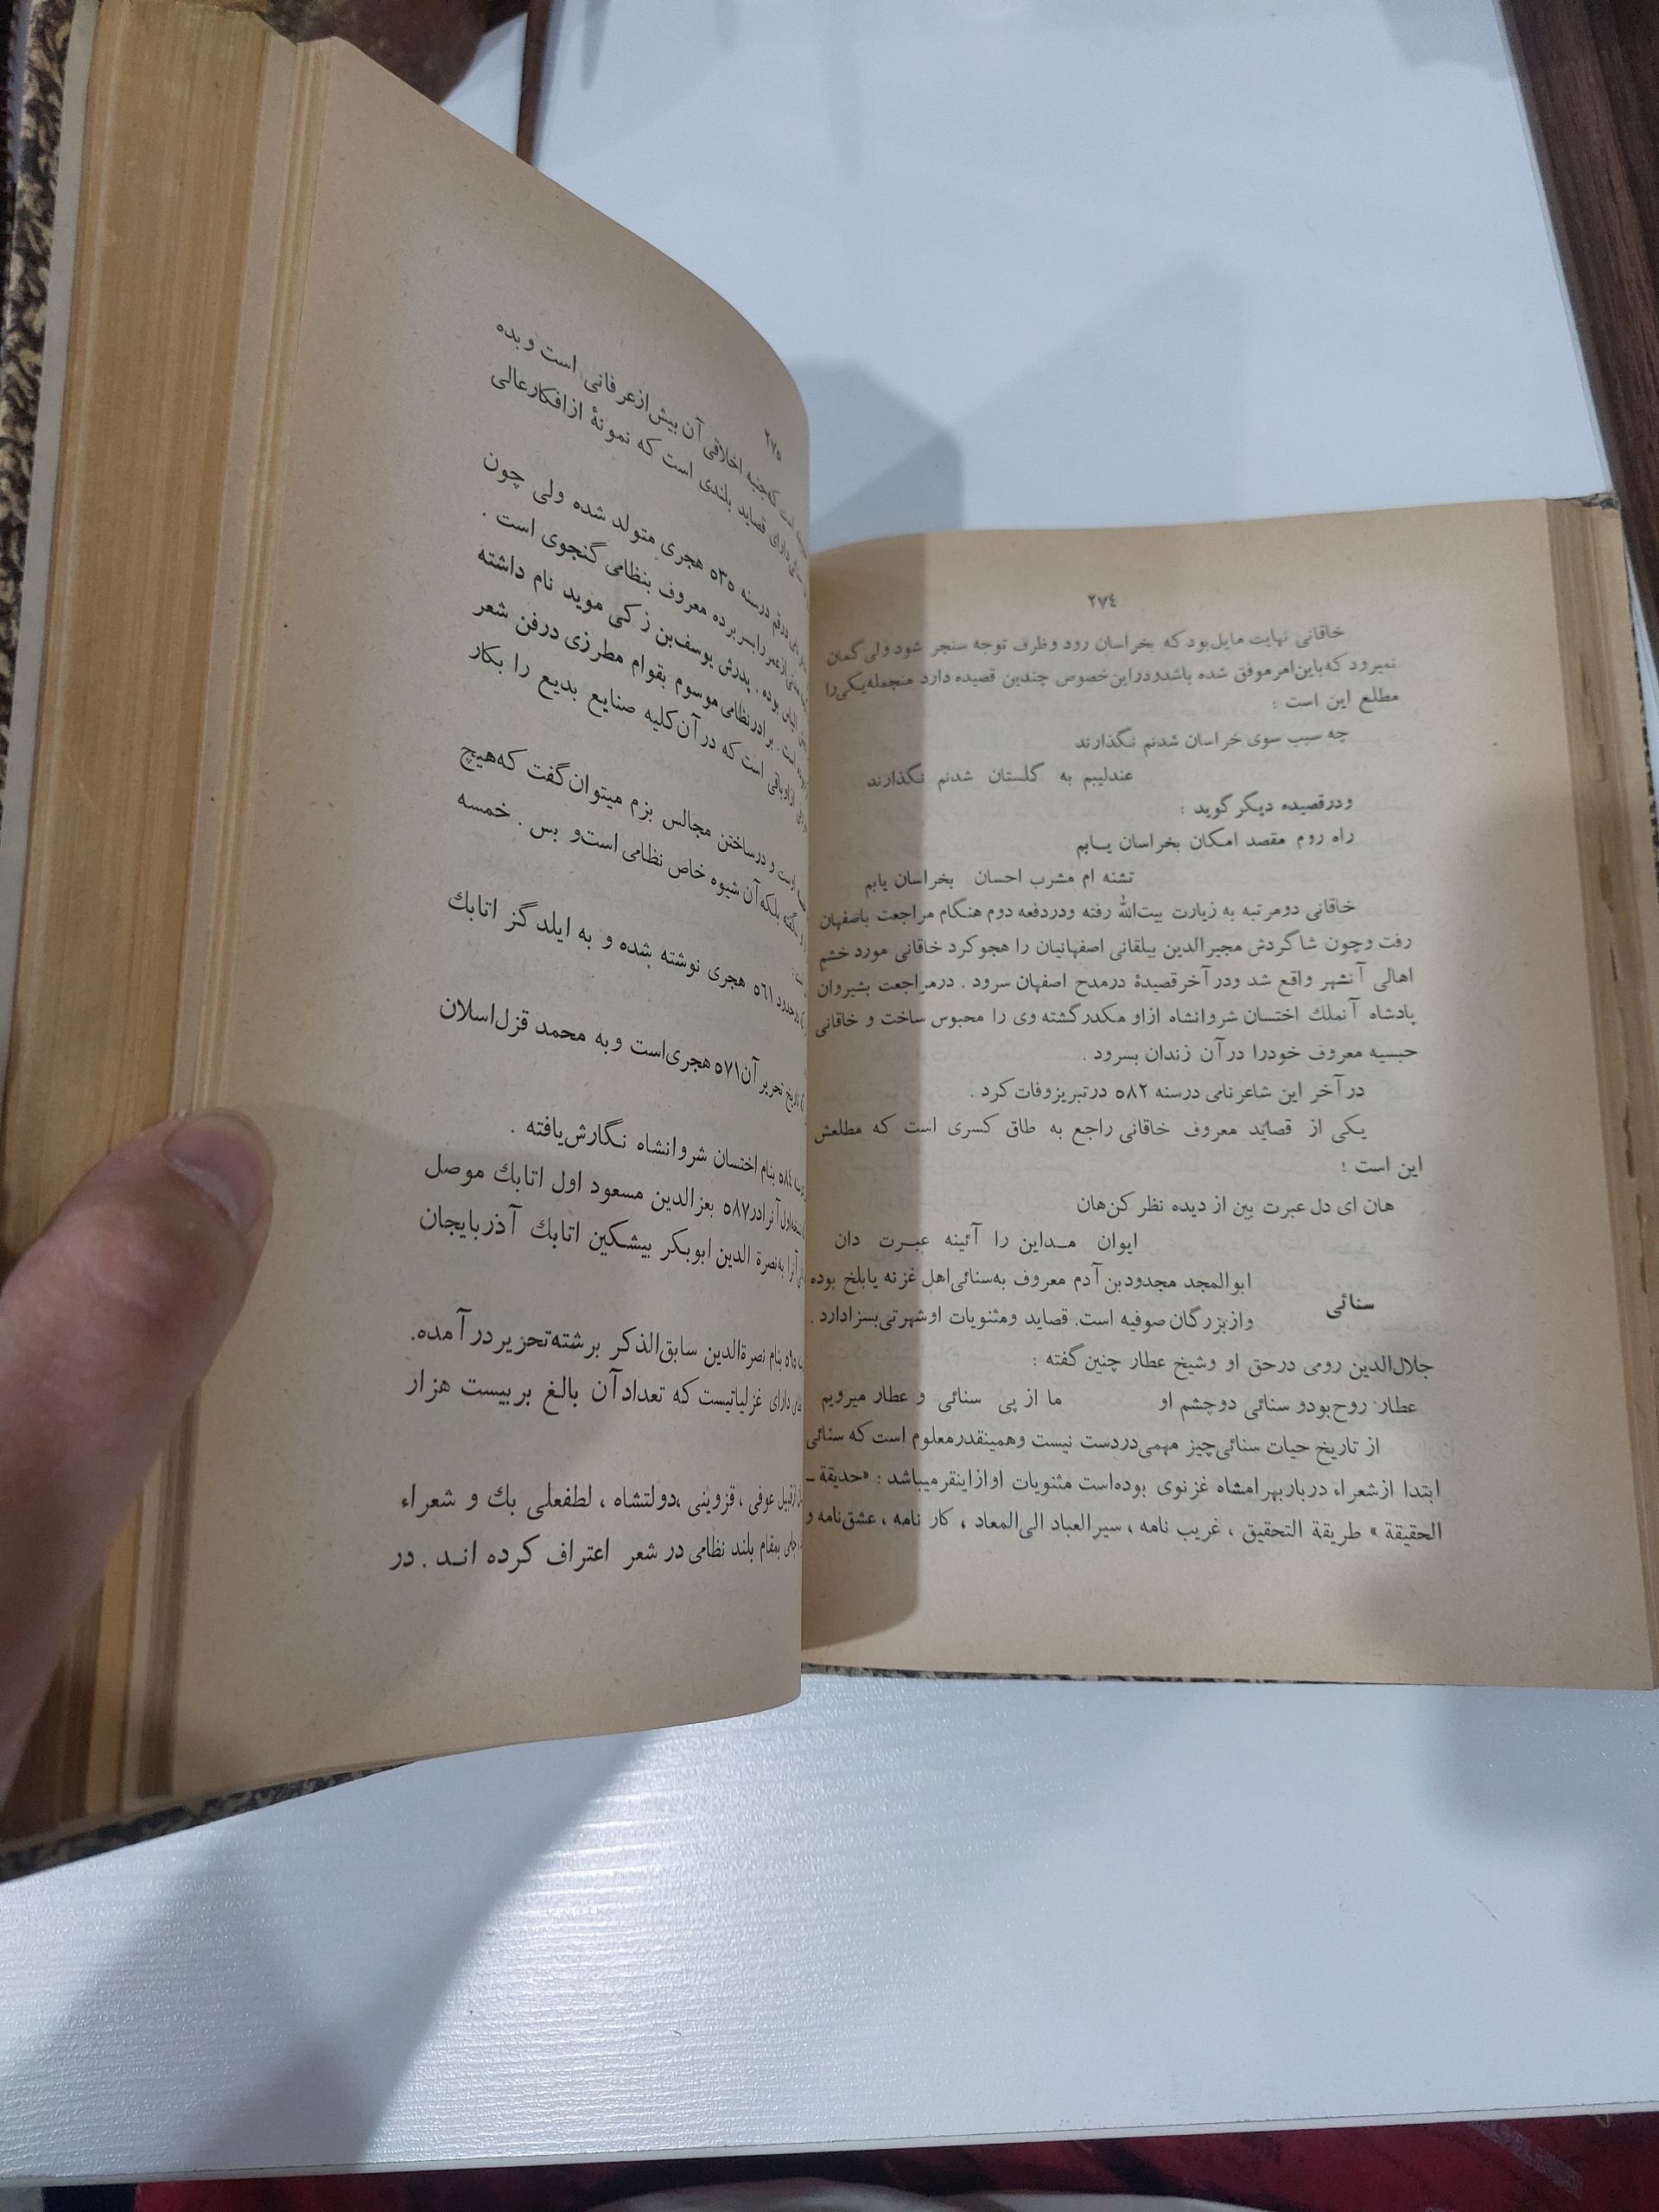 ۲۷٤
خاقانی نهایت مایل‌بود که بخراسان رود وظرف توجه سنجر شود ولی گمان
نمیرود که‌باین‌امرموفق شده باشدودراین‌خصوص چندین قصیده دارد منجمله‌یکی‌را
مطلع این است :
چه سبب سوی خراسان شدنم نگذارند
عندلیبم به گلستان شدنم نگذارند
ودرقصیده دیگر گوید :
راه روم مقصد امکان بخراسان یـابم
تشنه ام مشرب احسان بخراسان یابم
خاقانی دومرتبه به زیارت بیت‌الله رفته ودردفعه دوم هنگام مراجعت باصفهان
رفت وچون شاگردش مجیرالدین بیلقانی اصفهانیان را هجوکرد خاقانی مورد خشم
اهالی آنشهر واقع شد ودرآخرقصیدهٔ درمدح اصفهان سرود . درمراجعت بشیروان
پادشاه آنملك اختسان شروانشاه ازاو مکدرگشته وی را محبوس ساخت و خاقانی
حبسیه معروف خودرا درآن زندان بسرود .
در آخر این شاعر نامی درسنه ٥٨٢ درتبریزوفات‌کرد .
یکی از قصائد معروف خاقانی راجع به طاق کسری است که مطلعش
این است :
هان ای دل عبرت بین از دیده نظر کن‌هان
ایوان مـداین را آئینه عبـرت دان
سنائی
ابوالمجد مجدودبن آدم معروف به‌سنائی‌اهل غزنه یابلخ بوده
وازبزرگان صوفیه است. قصاید ومثنویات اوشهرتی‌بسزادارد .
جلال‌الدین رومی درحق او وشیخ عطار چنین گفته :
عطار روح‌بودو سنائی دوچشم او ما از پی سنائی و عطار میرویم
از تاریخ حیات سنائی‌چیز مهمی‌دردست نیست وهمینقدرمعلوم است که سنائی
ابتدا ازشعراء درباربهرامشاه غزنوی بوده‌است مثنویات اوازاینقرمیباشد : «حدیقة ـ
الحقیقة » طریقة التحقیق ، غریب نامه ، سیرالعباد الی‌المعاد ، کار نامه ، عشق‌نامه و
۲۷٥
است که‌جنبه اخلاقی آن بیش‌ازعرفانی است و بده
دارای قصاید بلندی است که نمونهٔ ازافکارعالی
درقم درسنه ٥٣٥ هجری متولد شده ولی چون
ازعمررابسربرده معروف بنظامی گنجوی است .
الیاس بوده . پدرش یوسف‌بن زکی موید نام داشته
است . برادرنظامی موسوم بقوام مطرزی درفن شعر
ازاوباقی است که درآن‌کلیه صنایع بدیع را بکار
اوست و درساختن مجالس بزم میتوان‌گفت که‌هیچ
نگفته بلکه‌آن شیوه خاص نظامی است‌و بس . خمسه
درحدود ٥٦١ هجری نوشته شده و به ایلدگز اتابك
تاریخ تحریر آن٥٧١ هجری‌است وبه محمد قزل‌اسلان
٥٨٤ بنام اختسان شروانشاه نگارش‌یافته .
اول آنرادر٥٨٧ بعزالدین مسعود اول اتابك موصل
آنرا به‌نصرة الدین ابوبکر بیشکین اتابك آذربایجان
بنام نصرةالدین سابق‌الذکر برشته‌تحریردرآمده.
دارای غزلیاتیست که تعدادآن بالغ بربیست هزار
ازقبیل عوفی ، قزوینی ،دولتشاه ، لطفعلی بك و شعراء
جامی بمقام بلند نظامی در شعر اعتراف کرده انـد . در